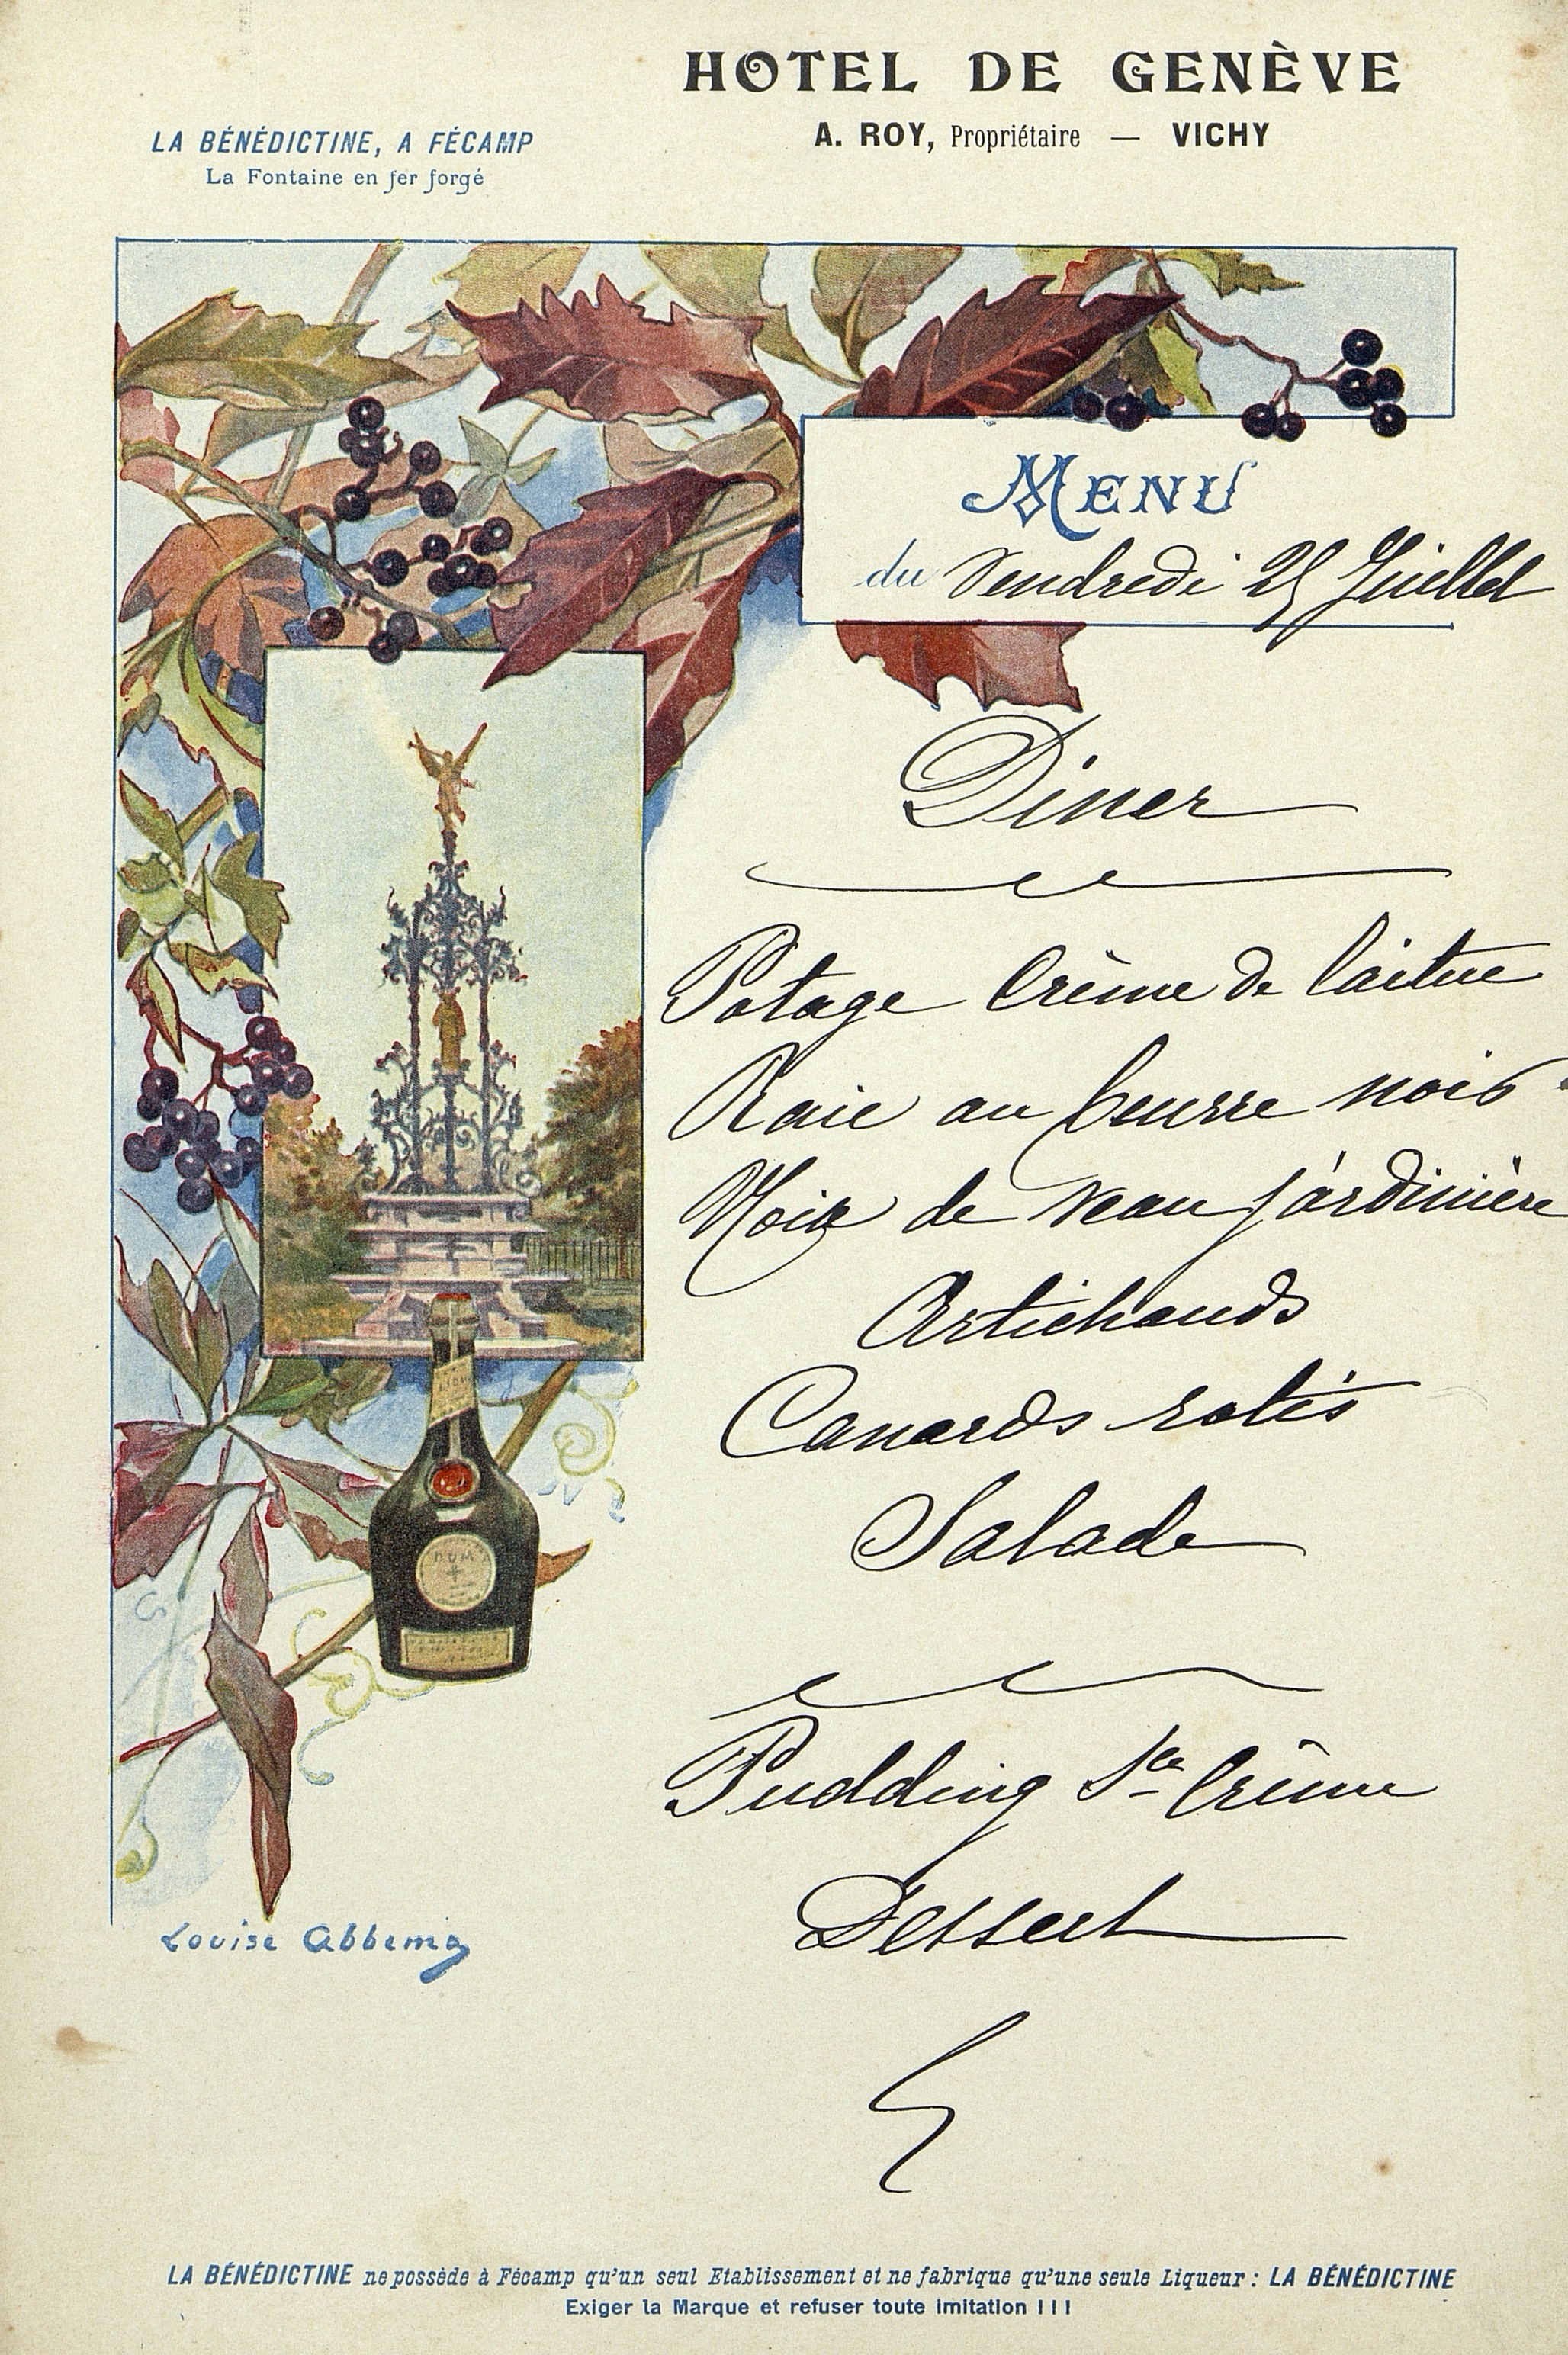 HOTEL DE GENÈVE
A. ROY, Propriétaire — VICHY
LA BÉNÉDICTINE, A FÉCAMP
La Fontaine en fer forgé
MENU
du Vendredi 25 Juillet
Diner
Potage Crème de laitue
Raie au beurre noir
Noix de veau jardinière
Artichauds
Canards rotis
Salade
Pudding Sce Crème
Dessert
Louise Abbema
LA BÉNÉDICTINE ne possède à Fécamp qu'un seul Etablissement et ne fabrique qu'une seule Liqueur : LA BÉNÉDICTINE
Exiger la Marque et refuser toute imitation !!!